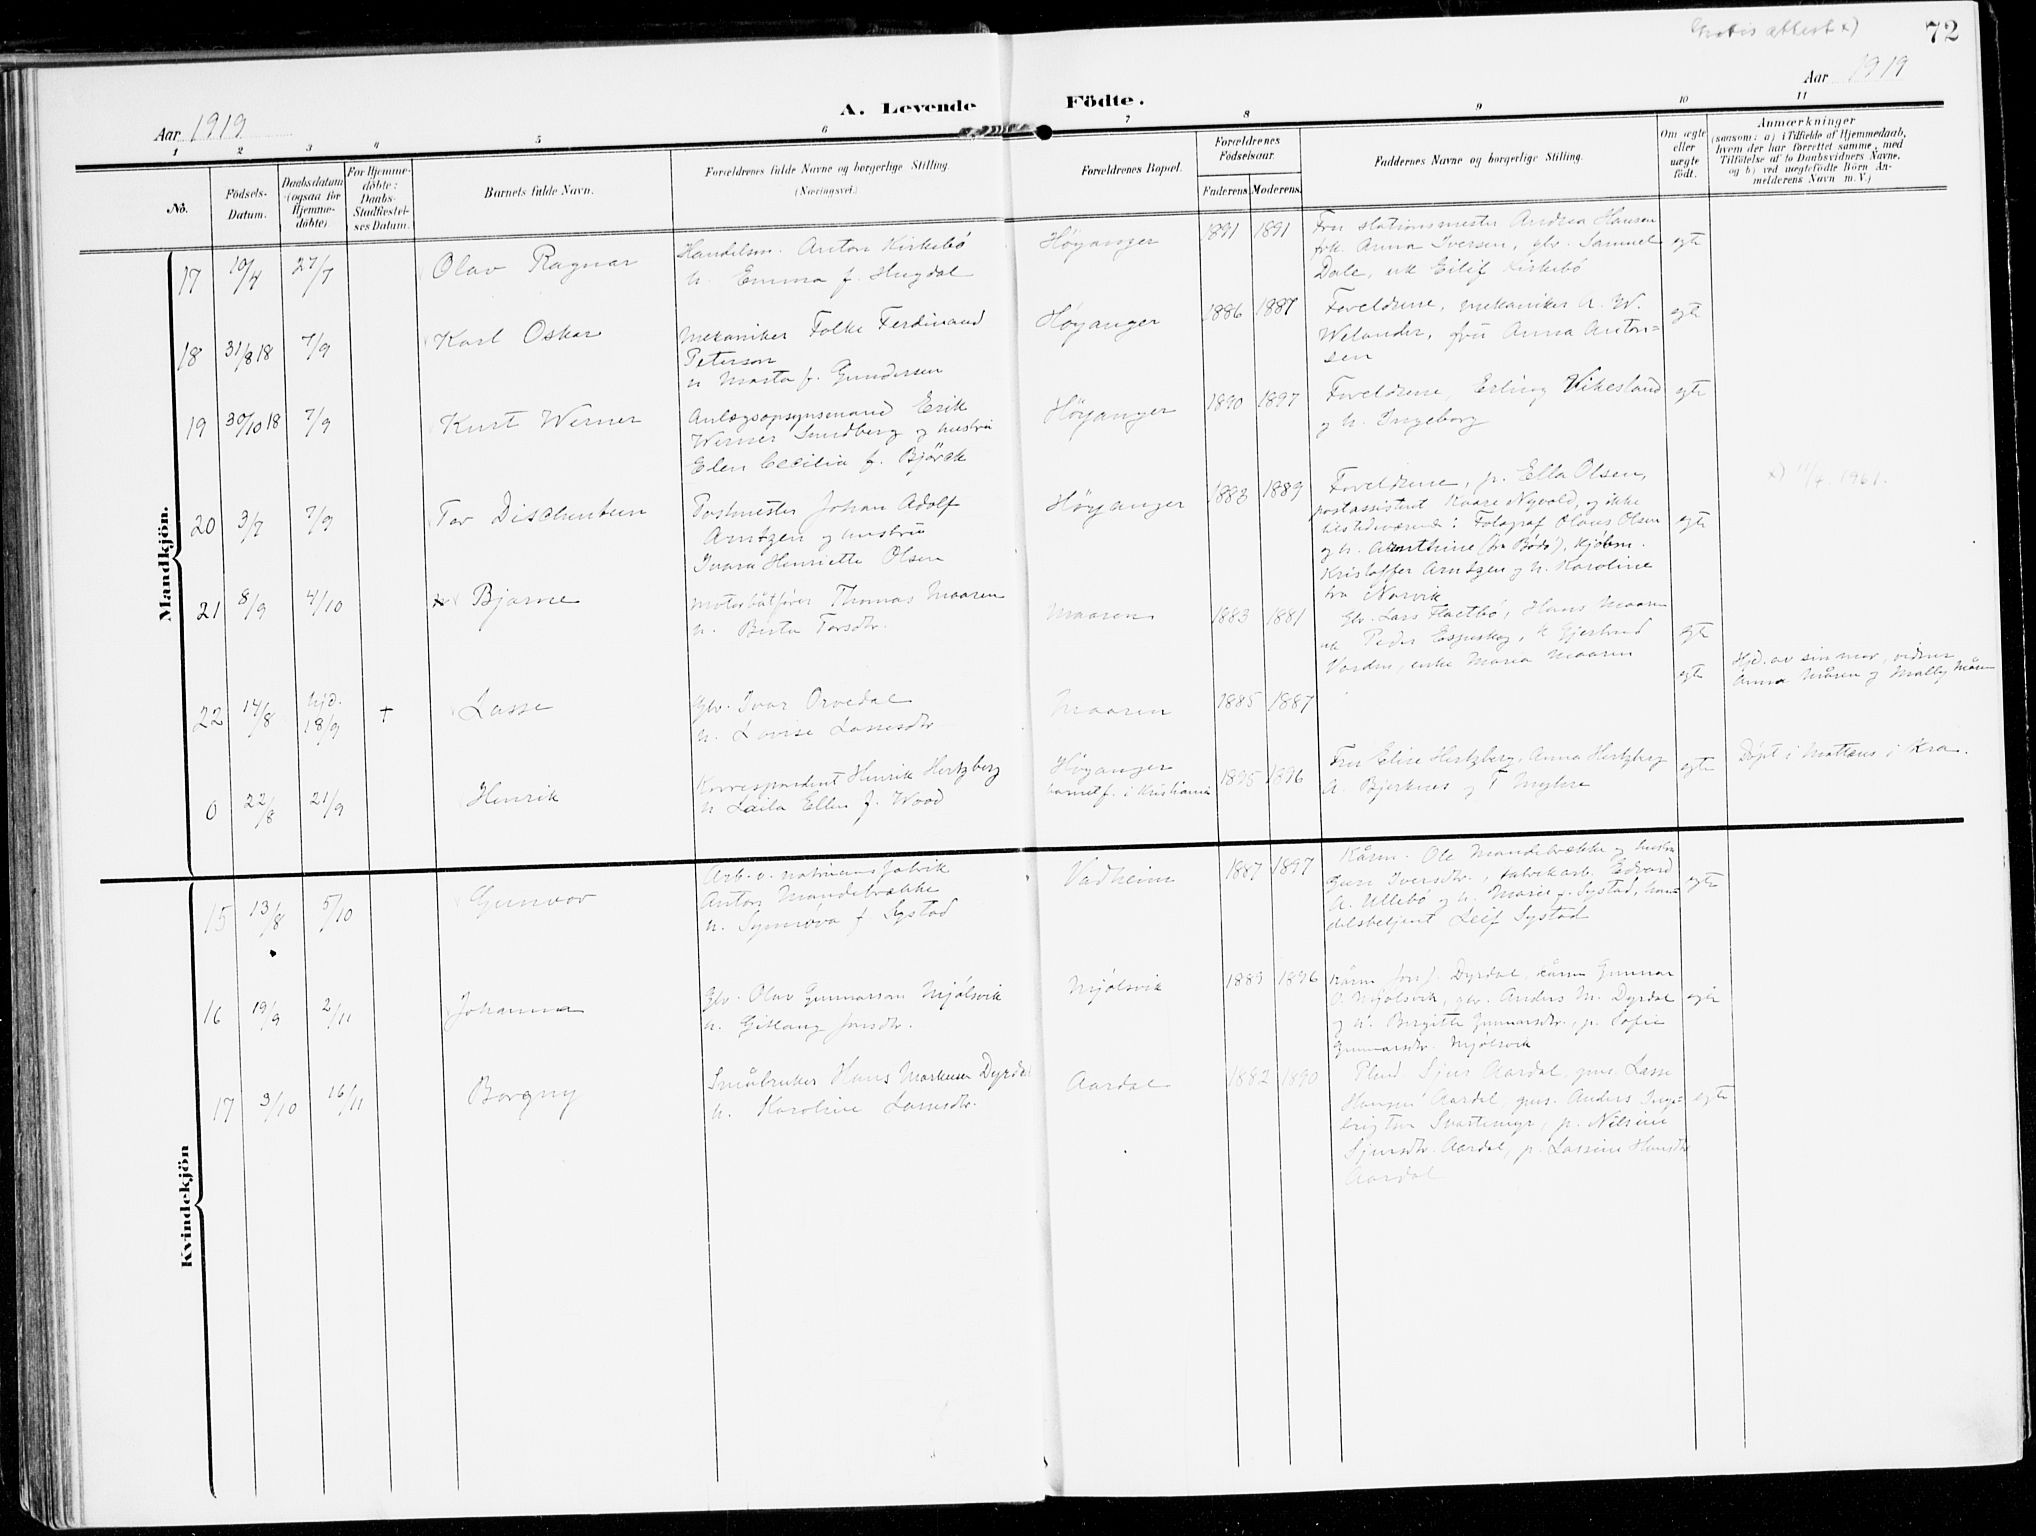 Gratis attest x)
72
Aar 1919
A. Levende Födte.
Aar 1919
1 2 3 4 5 6 7 8 9 10 11
No.
Födsels-Datum.
Daabsdatum (ogsaa for Hjemmedöbte)
For Hjemmedöbte: Daabs-Stadfestelses Datum.
Barnets fulde Navn.
Forældrenes fulde Navne og borgerlige Stilling.
(Næringsvei.)
Forældrenes Bopæl.
Forældrenes Födselsaar.
Faderens Moderens
Faddernes Navne og borgerlige Stilling.
Om ægte eller uægte födt.
Anmærkninger
(saasom: a) i Tilfælde af Hjemmedaab,
hvem der har forrettet samme, med
Tilföielse af to Daabsvidners Navne,
og b) ved uægtefödte Börn Anmelderens Navn m. V.)
Mandkjön.
17 10/4 27/7 Olav Ragnar
Handelsm. Anton Kirkebö
h. Emma f. Hugdal
Höyanger 1891 1891
Fru stationsmester Andrea Hansen
frk. Anna Iversen, gbr. Samuel
Dale, uk Eilif Kirkebö
egte
18 31/8 18 7/9 Karl Oskar
Mekaniker Folke Ferdinand
Peterson
h Marta f. Gundersen
Höyanger 1886 1887
Foreldrene, mekaniker A. W.
Welander, fru Anna Anton-
sen
egte
19 30/10 18 7/9 Kurt Werner
Anlægsopsynsmand Erik
Werner Sundberg og hustru
Elen Cecilia f. Björck
Höyanger 1890 1897
Foreldrene, Erling Vikesland
og h. Ingeborg
egte
20 3/7 7/9 Tor Dischentun
Postmester Johan Adolf
Arntzen og hustru
Ivara Henriette Olsen
Höyanger 1883 1889
Foreldrene, p. Ella Olsen,
postassistent Kaare Nyvold, og ikke
tilstedeværende: Fotograf Olaus Olsen
og h. Anthine (fra Bodø), Kjøbm.
Kristoffer Arntzen og h. Karoline
fra Narvik
egte
x) 11/4 1961.
21 8/9 4/10 Bjarne
Motorbåtfører Thomas Maaren
h. Berta Torsdtr.
Maaren 1883 1881
Gbr. Lars Flaetbö, Hans Maaren
uk Peder Espeskog, k Gjertrud
Vorden, enke Maria Maaren
egte
22 14/8 hjd. 18/9 † Lasse
Gbr. Ivar Orvedal
h. Lovise Lassesdtr
Maaren 1885 1887
egte
Hjd. av sin mor, vidner
Anna Måren og Malby Måren
0 22/8 21/9 Henrik
Korrespondent Henrik Hertzberg
h Laila Ellen f. Wood
Höyanger
barnet f. i Kristiania
1895 1896
Fru Elise Hertzberg, Anna Hertzberg
A. Bjerknes og T Myhre
egte
Døpt i Matteus i Kra.
Kvindekjön
15 13/8 5/10 Gunvor
Arb. v. natriumsfabrik
Anton Mandebrække
h. Synnöva f. Systad
Vadheim 1887 1897
Kårm. Ole Mandebrække og hustru
Guri Iversdtr., fabrikarb. Edvard
A. Ullebö og h. Marie f. Systad, han-
delsbetjent Leif Systad
egte
16 19/9 2/11 Johanna
Gbr. Olav Gunnarson Mjölsvik
h. Gitlaug Jonsdtr.
Mjölsvik 1889 1896
Kårm Jon J. Dyrdal, kårm Gunnar
O. Mjölsvik, gbr. Anders M. Dyrdal
og h. Birgitte Gunnarsdtr., p. Sofie
Gunnarsdtr. Mjölsvik
egte
17 3/10 16/11 Borgny
Småbruker Hans Markusen Dyrdal
h. Karoline Lassesdtr.
Aardal 1882 1890
Sjur Aardal, gms. Lasse
Aardal, gms. Anders Inge-
brigtsen Svartemyr, p. Nilsine
Sjursdtr. Aardal, p. Lassine Hansdtr
Aardal
egte